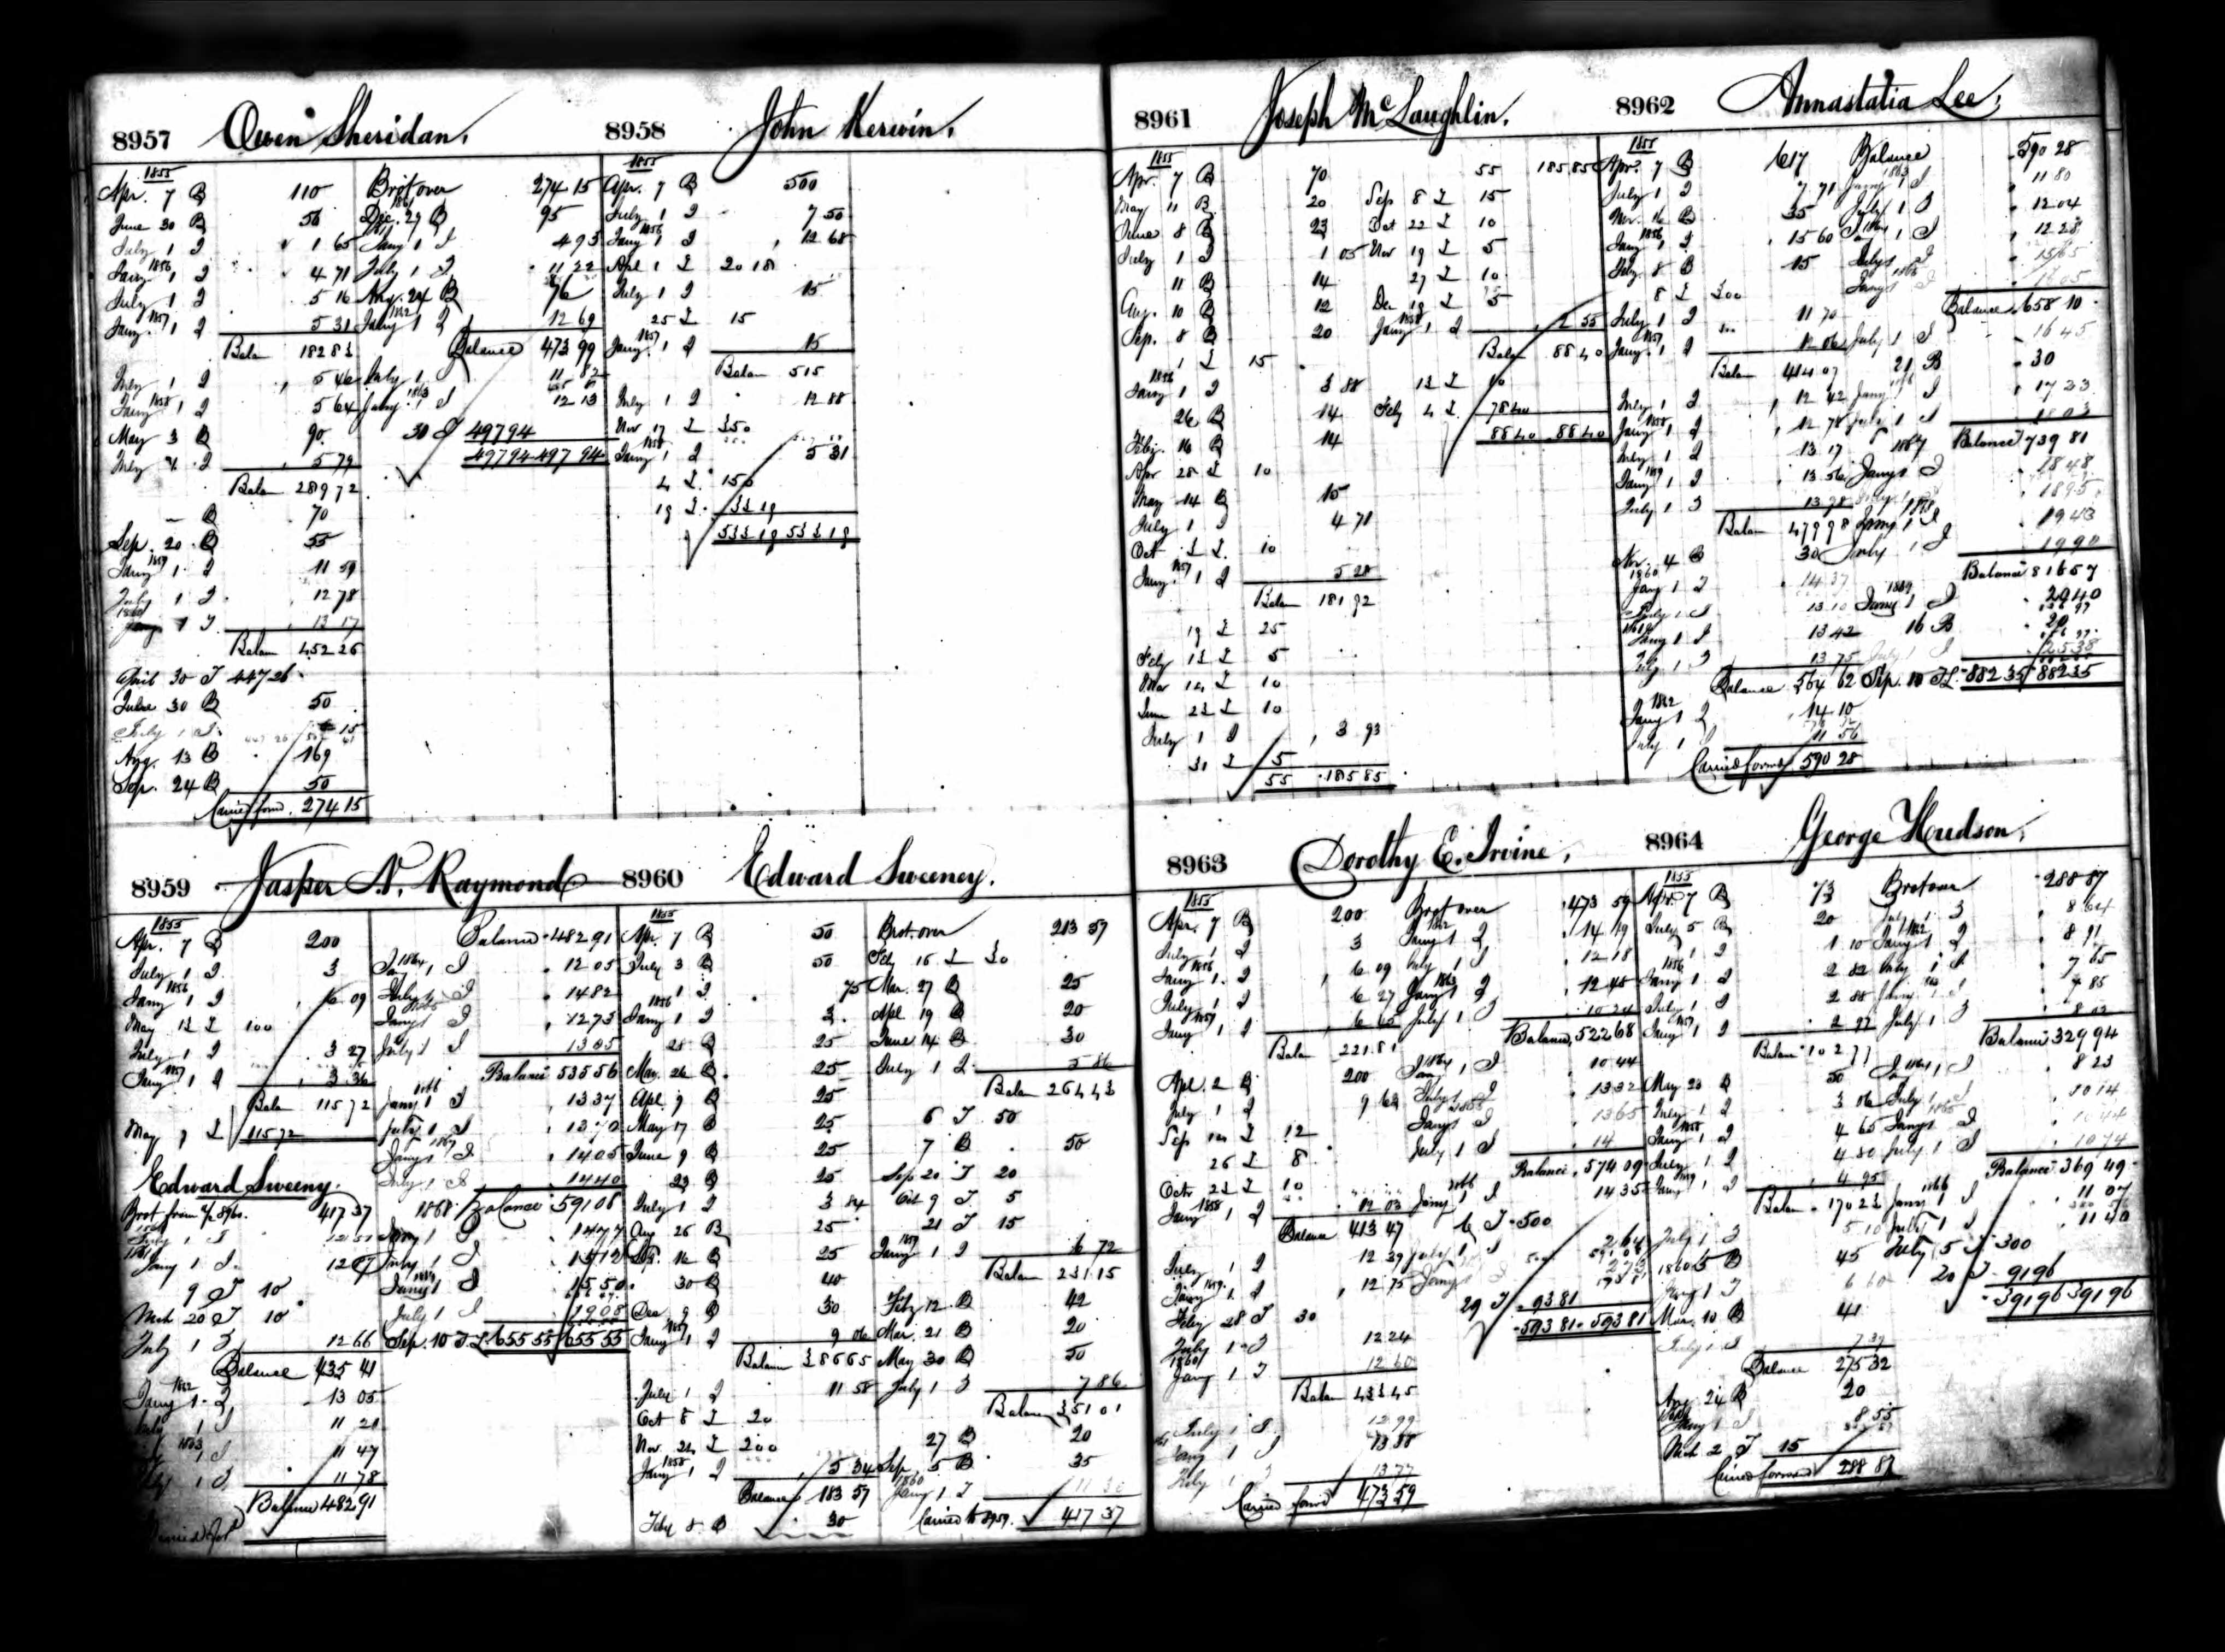 8957 Owen Sheridan.
1855
Apr. 7 B 110
June 30 B 56
July 1 I 1 65
1856
Jany. 1 I 4 71
July 1 I 5 16
1857
Jany. 1 I 5 31
Balan 182 83
July 1 I 5 46
1858
Jany 1 I 5 64
May 3 B 90
July 1 I 5 79
Balan 289 72
B 70
Sep. 20 B 55
1859
Jany 1 I 11 59
July 1 I 12 78
1860
Jany 1 I 13 17
Balan 452 26
April 30 I 447 26
June 30 B 50
July 1 I 15
Aug. 13 B 169
Sep. 24 B 50
Carried forwd. 274 15
Brot over 274 15
1861
Dec. 27 B 95
Jany 1 I 4 93
July 1 I 11 22
Aug. 24 B 76
1862
Jany 1 I 12 69
Balance 473 99
July 1 I 11 82
1863
Jany. 1 I 12 13
30 I 497 94
497 94 497 94
8958 John Kerwin.
1855
Apr. 7 B 500
July 1 I 7 50
1856
Jany 1 I 12 68
Apl 1 I 20 18
July 1 I 15
25 I 15
1857
Jany. 1 I 15
Balan 515
July 1 I 12 88
Nov 17 I 350
1858
Jany 1 I 5 31
4 I 150
19 I 33 19
533 19 533 19
8959 Jasper N. Raymond
1855
Apr. 7 B 200
July 1 I 3
1856
Jany 1 I 6 09
May 13 I 100
July 1 I 3 27
1857
Jany 1 I 3 36
Balan 115 72
May 9 I 115 72
Edward Sweeny.
Brot from a/c 8960. 417 37
July 1 I 12 51
1861
Jany 1 I 12 87
9 I 10
Mch 20 I 10
July 1 I 12 66
Balance 435 41
1862
Jany 1 I 13 05
July 1 I 11 20
1863
1 I 11 47
July 1 I 11 78
Balance 482 91
Balance 482 91
1864
Jany 1 I 12 05
July 1 I 14 82
1865
Jany 1 I 12 73
July 1 I 13 05
Balance 535 56
1866
Jany 1 I 13 37
July 1 I 13 70
1867
Jany 1 I 14 05
July 1 I 14 40
1868 Balance 591 08
Jany 1 I 14 77
July 1 I 15 12
1869
Jany 1 I 15 50
July 1 I 19 08
Sep. 10 I 655 55 655 55
8960 Edward Sweeney.
1855
Apr. 7 B 50
July 3 B 50
1 I 75
1856
Jany 1 I 3
28 B 25
Mar. 26 B 25
Apl. 9 B 25
May 17 B 25
June 9 B 25
23 B 25
July 1 I 3 84
Aug 26 B 25
16 B 25
30 B 40
Dec 9 B 30
1857
Jany 1 I 9 06
Balan 386 65
July 1 I 11 58
Oct 8 I 20
Nov. 24 I 200
1858
Jany 1 I 5 34
Balance 183 57
Feby 8 B 30
Brot. over 213 57
Feby 16 I 30
Mar. 27 B 25
Apl 19 B 20
June 14 B 30
July 1 I 5 86
Balan 264 43
6 I 50
7 B 50
Sep 20 I 20
Oct 9 I 5
21 I 15
1859
Jany 1 I 6 72
Balan 231 15
Feby 12 B 42
Mar. 21 B 20
May 30 B 50
July 1 I 7 86
Balan 351 01
27 B 20
Sep. 5 B 35
1860
Jany 1 I 11 36
Carried to 8959. 417 37
8961 Joseph McLaughlin.
1855
Apr. 7 B 70
May 11 B 20
June 8 B 23
July 1 I 1 05
11 B 14
Aug. 10 B 12
Sep. 8 B 20
1 I 15
1856
Jany 1 I 3 88
26 B 14
Feby. 16 B 14
Apr 28 I 10
May 14 B 15
July 1 I 4 71
Oct 3 I 10
1857
Jany. 1 I 5 28
Balan 181 92
19 I 25
Feby 13 I 5
Mar 14 I 10
June 23 I 10
July 1 I 3 93
31 I 5
55 185 85
55 185 85
Sep 8 I 15
Oct 22 I 10
Nov 19 I 5
27 I 10
Dec 19 I 5
1858
Jany 1 I 2 55
Balan 88 40
13 I 10
Feby 4 I 78 40
88 40 88 40
8962 Annastatia Lee.
1855
Apr. 7 B 617
July 1 I 7 71
Nov. 16 B 35
1856
Jany 1 I 15 60
Feby. 8 B 15
8 I 300
July 1 I 11 70
1857
Jany. 1 I 12 06
Balan 414 07
July 1 I 12 42
1858
Jany 1 I 12 78
July 1 I 13 17
1859
Jany 1 I 13 56
July 1 I 13 98
Balan 479 98
Nov. 4 B 30
1860
Jany 1 I 14 37
July 1 I 13 10
Jany 1 I 13 42
July 1 I 13 75
Balance 564 62
1862
Jany 1 I 14 10
July 1 I 11 56
Carried forwd 590 28
Balance 590 28
1863
Jany 1 I 11 80
July 1 I 12 04
1864
Jany 1 I 12 28
July 1 I 15 65
1865
Jany 1 I 16 05
Balance 658 10
July 1 I 16 45
21 B 30
Jany 1 I 17 23
July 1 I 18 03
1867 Balance 739 81
Jany 1 I 18 48
July 1 I 18 95
1868
Jany 1 I 19 43
July 1 I 19 90
Balance 816 57
1869
Jany 1 I 20 40
16 B 20
July 1 I 25 38
Sep. 10 I 882 35 882 35
8963 Dorothy E. Irvine.
1855
Apr. 7 B 200
July 1 I 3
1856
Jany 1 I 6 09
July 1 I 6 27
1857
Jany 1 I 6 45
Balan 221 81
Apl. 2 B 200
July 1 I 9 63
Sep 14 I 12
26 I 8
Octr 23 I 10
1858
Jany 1 I 12 03
Balance 413 47
July 1 I 12 39
1859
Jany 1 I 12 75
Feby 28 I 30
July 1 I 12 24
1860
Jany 1 I 12 60
Balan 433 45
July 1 I 12 99
Jany 1 I 13 38
July 1 I 13 77
Carried forwd 473 59
Brot over 473 59
1862
Jany 1 I 14 19
July 1 I 12 18
1863
Jany 1 I 12 48
July 1 I 10 24
Balance 522 68
1864
Jany 1 I 10 44
July 1 I 13 32
1865
Jany 1 I 13 65
July 1 I 14
Balance 574 09
1866
Jany 1 I 14 35
6 I 500
July 1 I 2 64
Jany 1 I 2 73
29 I 93 81
593 81 593 81
8964 George Hudson.
1855
Apr. 7 B 73
July 5 B 20
1 I 1 10
1856
Jany 1 I 2 82
July 1 I 2 88
1857
Jany 1 I 2 97
Balan 102 77
May 23 B 50
July 1 I 3 06
1858
Jany 1 I 4 65
July 1 I 4 80
1859
Jany 1 I 4 95
Balan 170 23
July 1 I 5 10
5 B 45
1860
Jany 1 I 6 60
Mar. 10 B 41
July 1 I 7 39
Balance 275 32
Aug. 24 B 20
Jany 1 I 8 55
Mch 2 I 15
Carried forward 288 87
Brot over 288 87
July 1 I 8 64
1862
Jany 1 I 8 91
July 1 I 7 65
Jany 1 I 7 85
July 1 I 8 02
Balance 329 94
1864
Jany 1 I 8 23
July 1 I 10 14
1865
Jany 1 I 10 44
July 1 I 10 74
Balance 369 49
1866
Jany 1 I 11 07
July 1 I 11 40
July 5 I 300
20 I 91 96
391 96 391 96